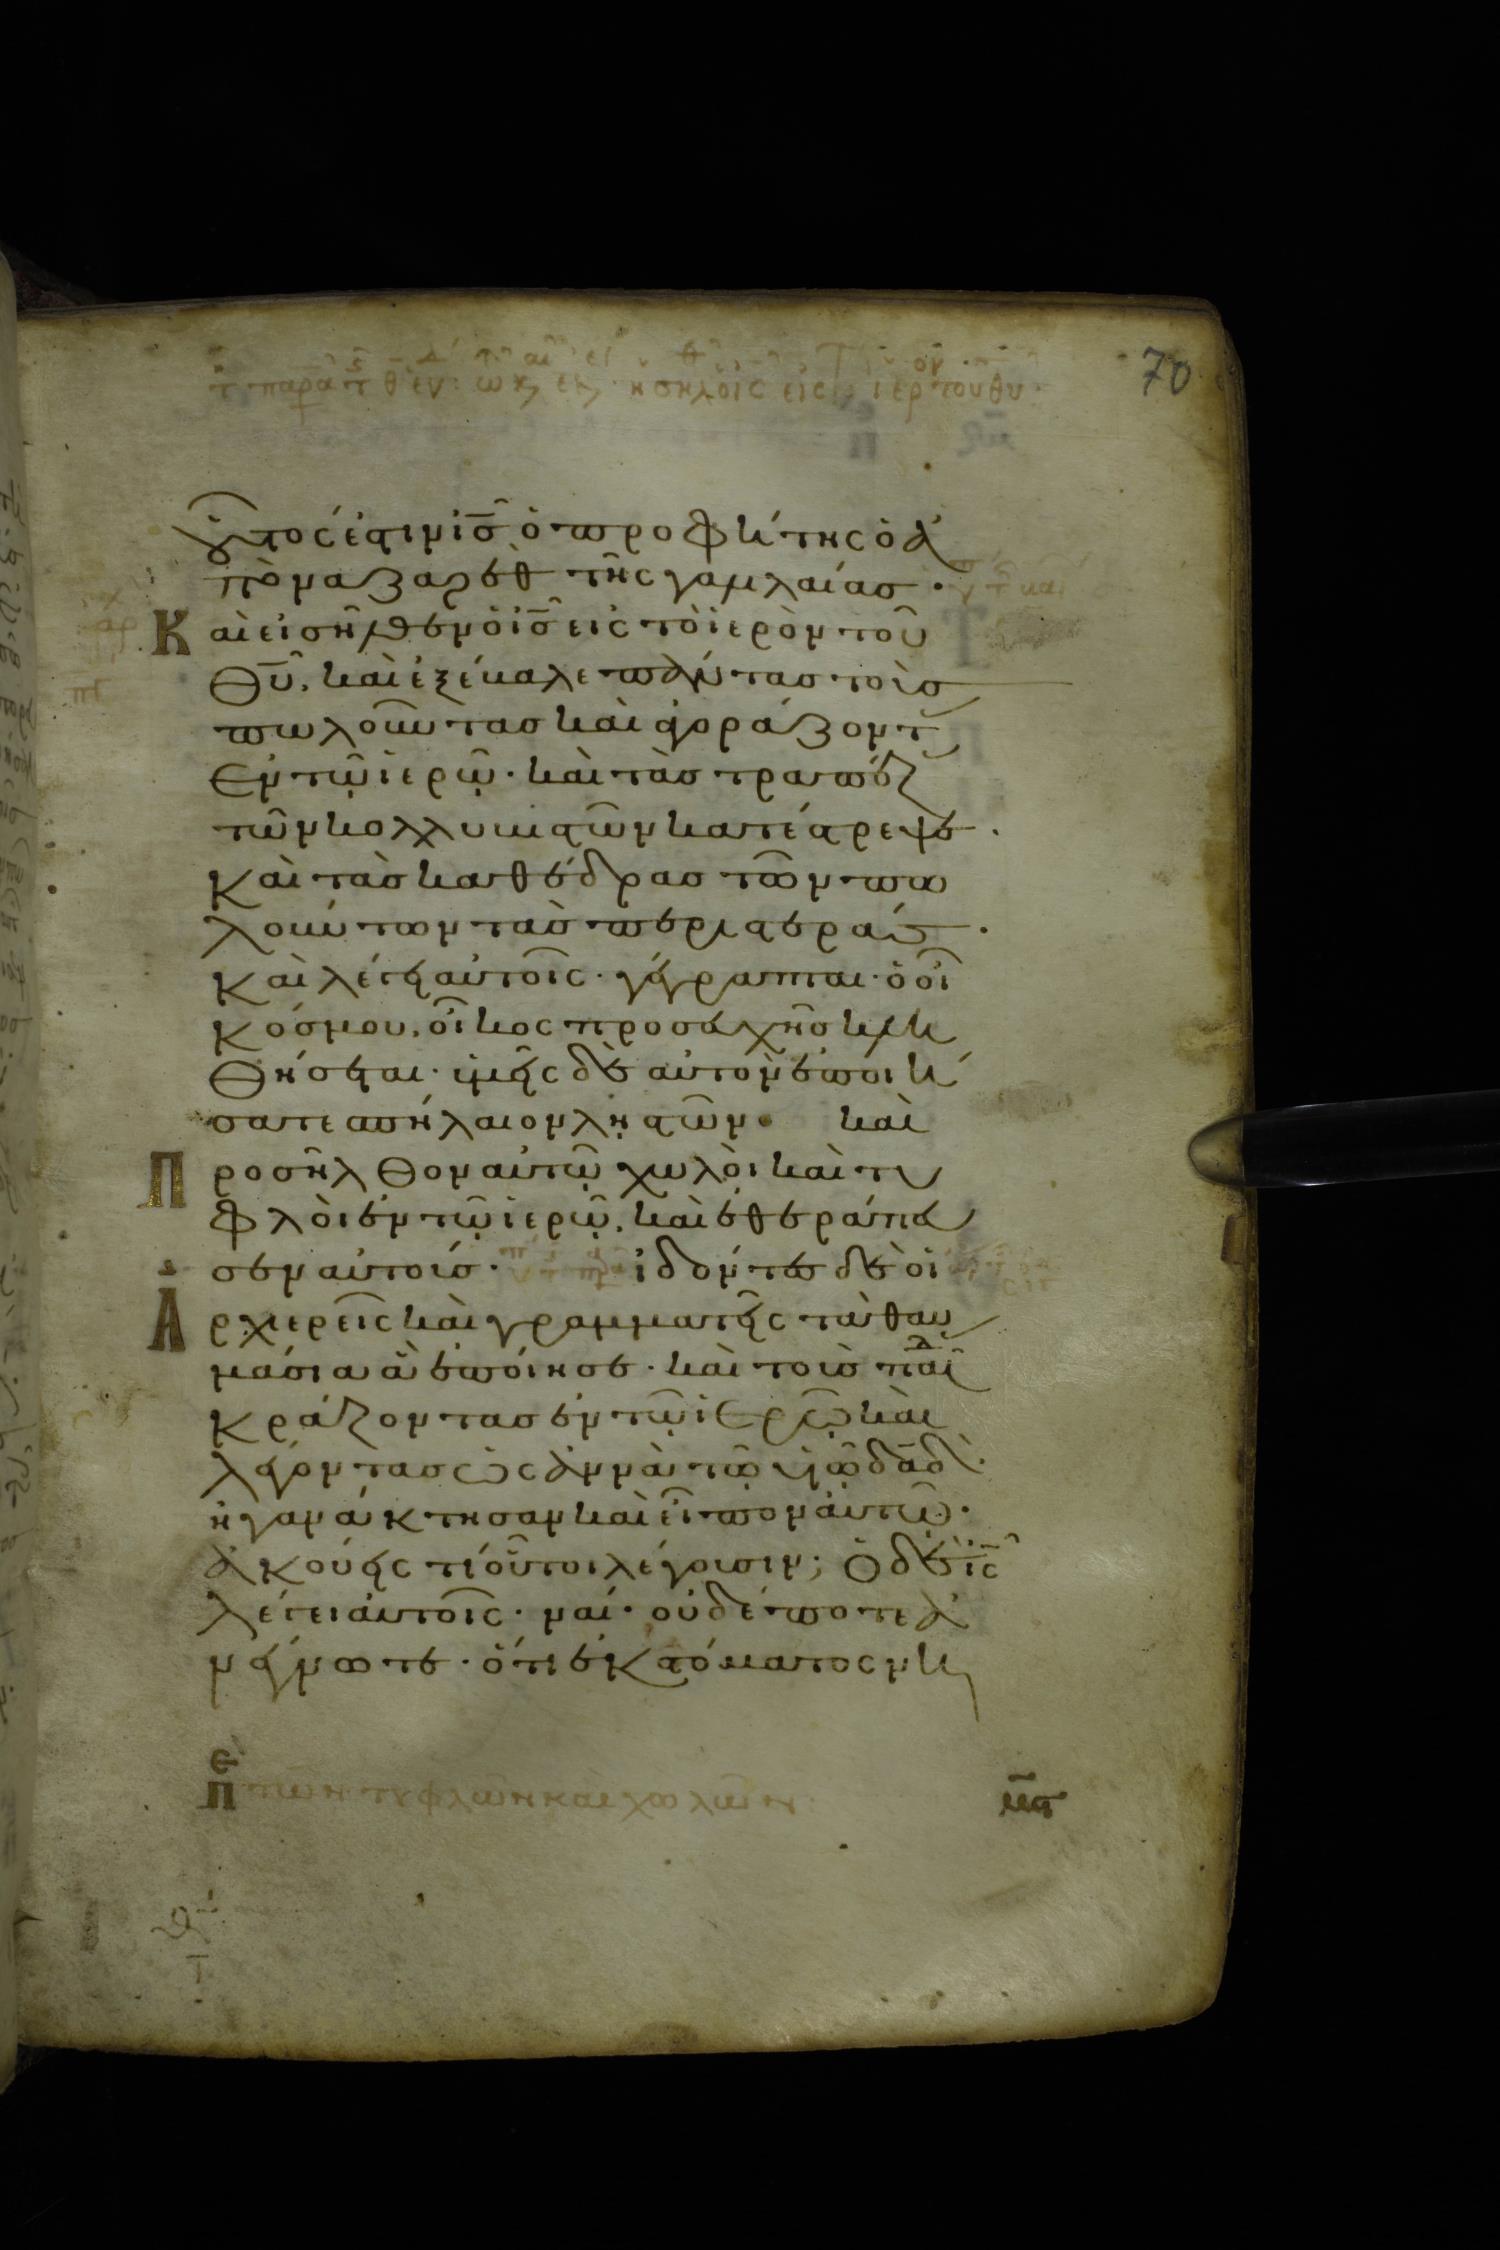 70
οὗτός ἐστιν ἰς̅ ὁ προφήτης ὁ ἀ
πὸ ναζαρὲθ τῆς γαλιλαίας.
Καὶ εἰσῆλθεν ὁ ἰς̅ εἰς τὸ ἱερὸν τοῦ
θυ̅, καὶ ἐξέβαλε πάντας τοὺς
πωλοῦντας καὶ ἀγοράζοντ
ἐν τῷ ἱερῷ· καὶ τὰς τραπέζ
τῶν κολλυβιστῶν κατέστρεψε.
καὶ τὰς καθέδρας τῶν πω
λούντων τὰς περιστεράς.
καὶ λέγει αὐτοῖς· γέγραπται· ὁ οἶ
κός μου, οἶκος προσευχῆς κλη
θήσεται· ὑμεῖς δὲ αὐτὸν ἐποιή
σατε σπήλαιον λῃστῶν. καὶ
Προσῆλθον αὐτῷ χωλοὶ καὶ τυ
φλοὶ ἐν τῷ ἱερῷ, καὶ ἐθεράπευ
σεν αὐτούς. ἰδόντες δὲ οἱ
Ἀρχιερεῖς καὶ γραμματεῖς τὰ θαυ
μάσια ἃ ἐποίησε· καὶ τοὺς παῖδ
κράζοντας ἐν τῷ ἱερῷ καὶ
λέγοντας ὡσαννὰ τῷ υἱῷ δαδ̅.
ἠγανάκτησαν καὶ εἶπον αὐτῷ.
ἀκούεις τί οὗτοι λέγουσιν; Ὁ δὲ ἰς̅
λέγει αὐτοῖς· ναί· οὐδέποτε ἀ
νέγνωτε· ὅτι ἐκ στόματος νη
ε
π τῶν τυφλῶν καὶ χωλῶν